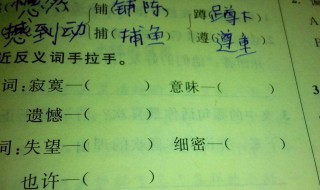 铺(铺陈) 蹲(蹲下)
感到动 捕(捕鱼) 遵(遵重)
近反义词手拉手。
词:寂寞—( ) 意味—( )
遗憾—( )
词:失望—( ) 细密—( )
也许—( )